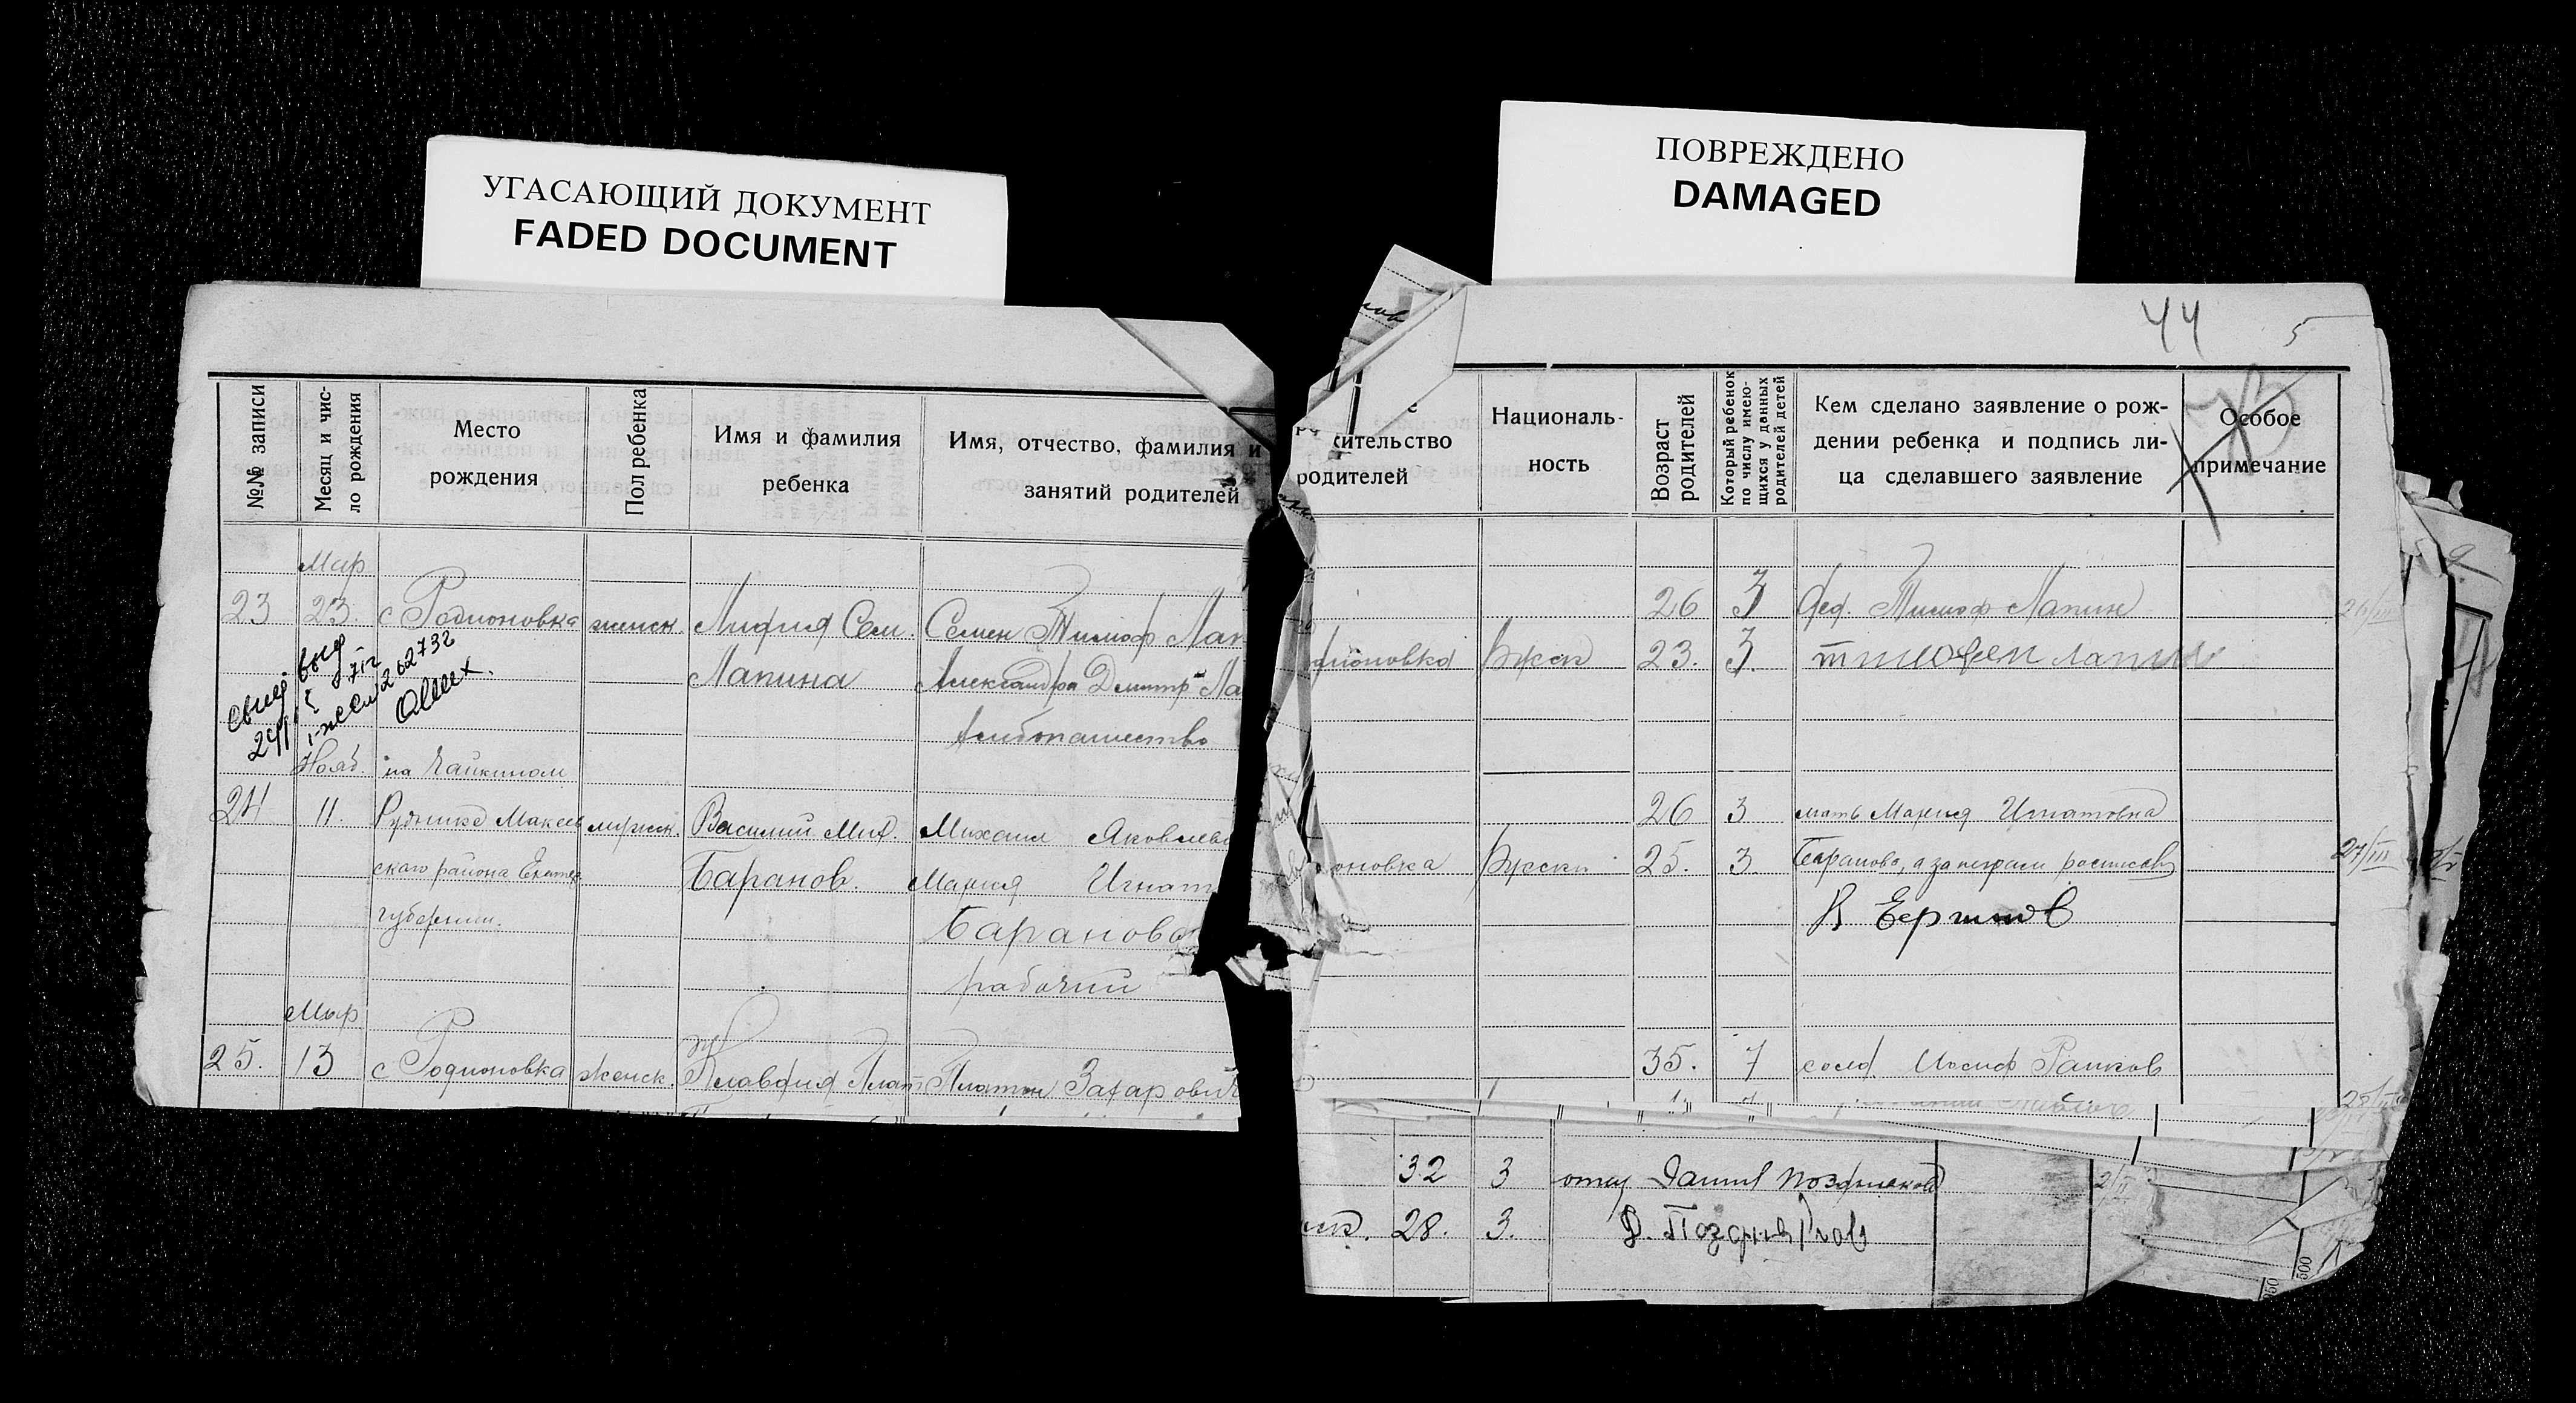 УГАСАЮЩИЙ ДОКУМЕНТ
FADED DOCUMENT
ПОВРЕЖДЕНО
DAMAGED
44
5
№№ записи
Месяц и чис-
ло рождения
Место
рождения
Пол ребенка
Имя и фамилия
ребенка
Имя, отчество, фамилия и
занятий родителей
жительство
родителей
Националь-
ность
Возраст
родителей
Который ребенок
по числу имею-
щихся у данных
родителей детей
Кем сделано заявление о рож-
дении ребенка и подпись ли-
ца сделавшего заявление
Особое
примечание
Мар
23 23. с Родионовка женск. Лидия Сем. Семен Тимоф Лап 26 3 дед. Тимоф Лапин 26/III
Лапина Александра Дмитр Ла дионовка Русск 23. 3. тимофеи лапин
свид выд
I-жсм 262732
хлебопашество
Нояб. на Чайкином
24 11. Руднике Макеев мужск. Василий Мих. Михаил Яковлев 26 3 мать Мария Игнатовна
скаго района Екатер Баранов. Мария Игнат оновка Русск 25. 3. Баранова, а за неграм расписался 27/III
губернии. Баранова В Ершов
рабочий
Мар
25. 13 с Родионовка женск. Клавдия Плат Платон Захарович 35. 7 сосед Иосиф
32 3 отец Данил Поздняков 2/II
28. 3. Д. Поздняков
500